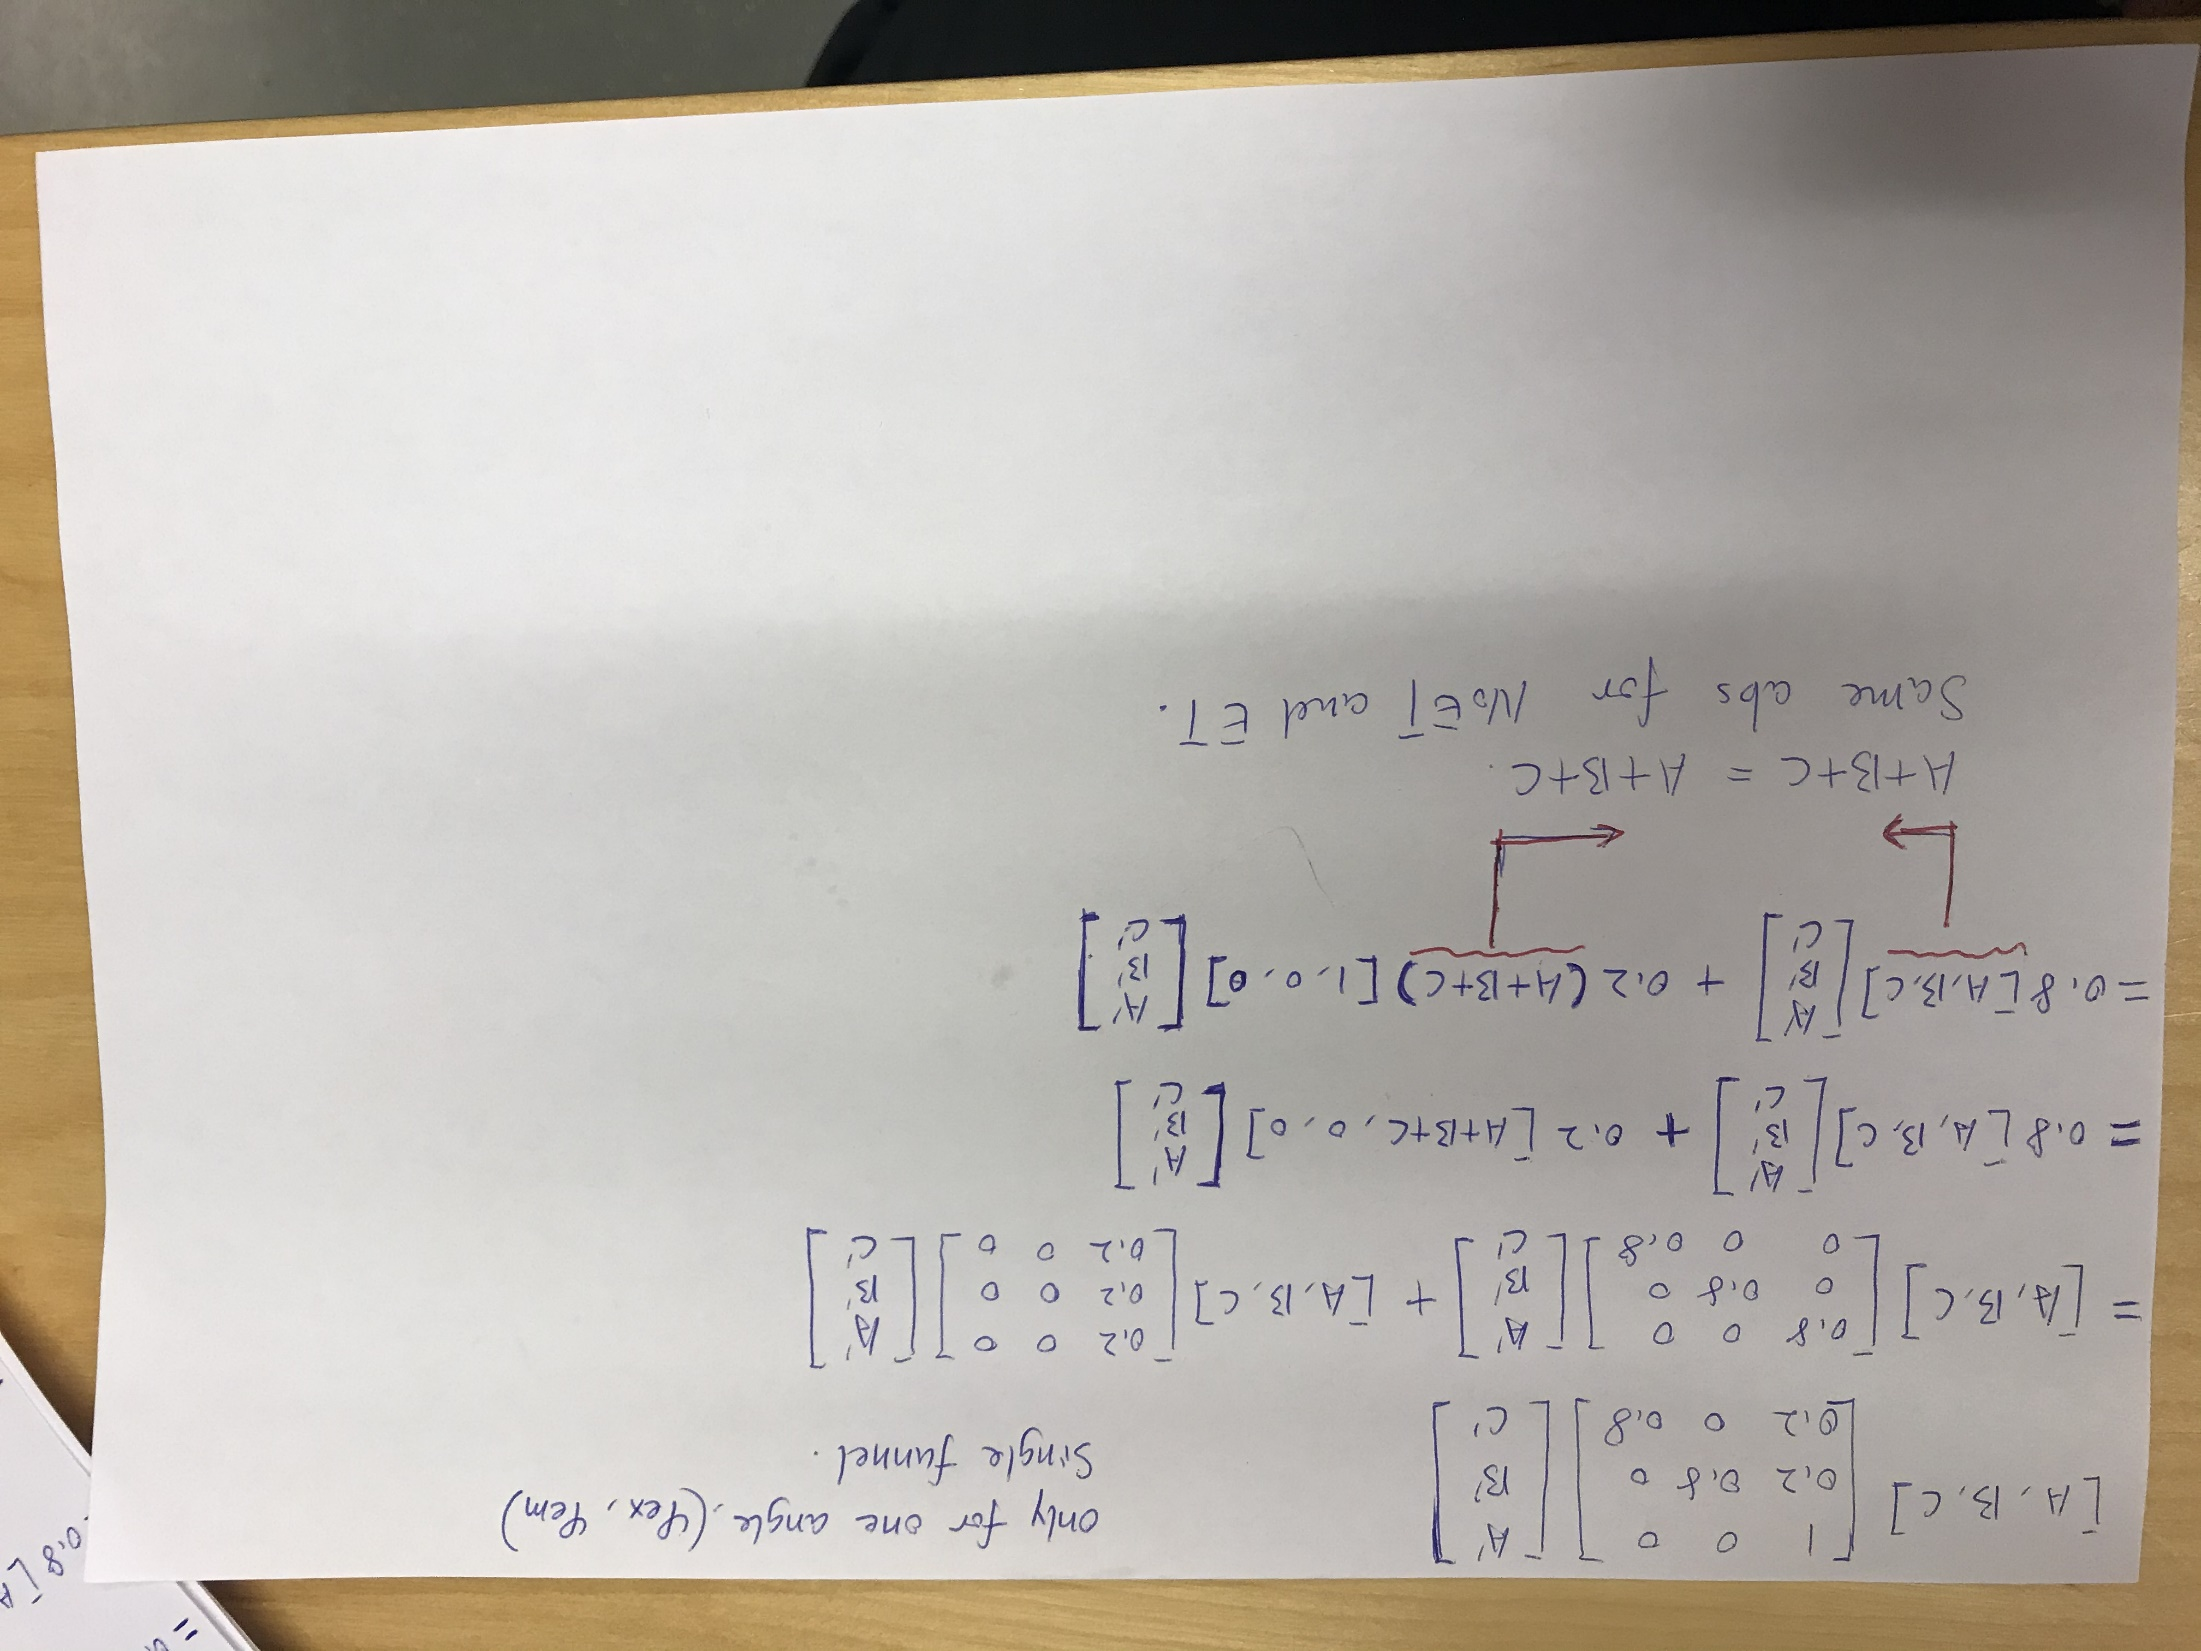 [A, B, C] [1 0 0; 0.2 0.8 0; 0.2 0 0.8] [A'; B'; C']
only for one angle, (φex, φem)
single funnel.
= [A, B, C] [0.8 0 0; 0 0.8 0; 0 0 0.8] [A'; B'; C'] + [A, B, C] [0.2 0 0; 0.2 0 0; 0.2 0 0] [A'; B'; C']
= 0.8 [A, B, C] [A'; B'; C'] + 0.2 [A+B+C, 0, 0] [A'; B'; C']
= 0.8 [A, B, C] [A'; B'; C'] + 0.2 (A+B+C) [1, 0, 0] [A'; B'; C']
A+B+C = A+B+C.
Same abs for NoET and ET.
=
0.8 [A